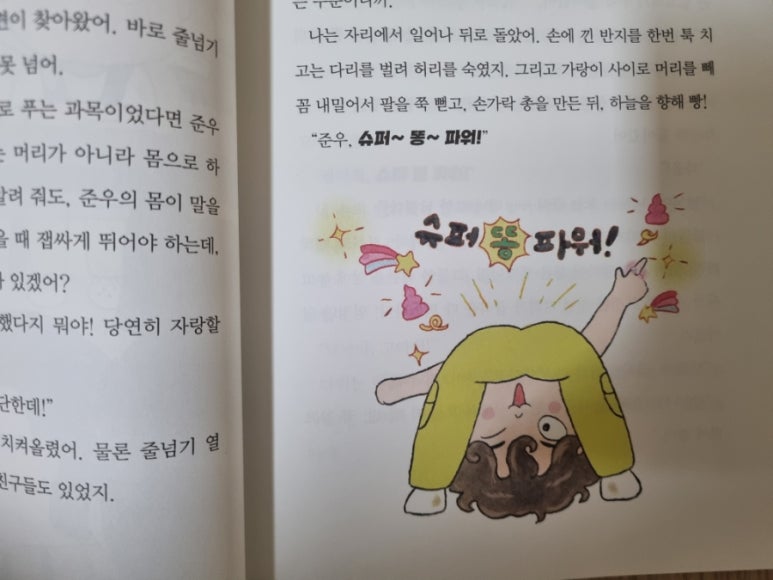 찾아왔어. 바로 줄넘기
못 넘어.
푸는 과목이었다면 준우
머리가 아니라 몸으로 하
줘도, 준우의 몸이 말을
때 잽싸게 뛰어야 하는데,
있겠어?
뭐야! 당연히 자랑할
치켜올렸어. 물론 줄넘기 열
있었지.
나는 자리에서 일어나 뒤로 돌았어. 손에 낀 반지를 한번 툭 치
고는 다리를 벌려 허리를 숙였지. 그리고 가랑이 사이로 머리를 빼
꼼 내밀어서 팔을 쭉 뻗고, 손가락 총을 만든 뒤, 하늘을 향해 빵!
“준우, 슈퍼~ 똥~ 파워!”
슈퍼 똥 파워!